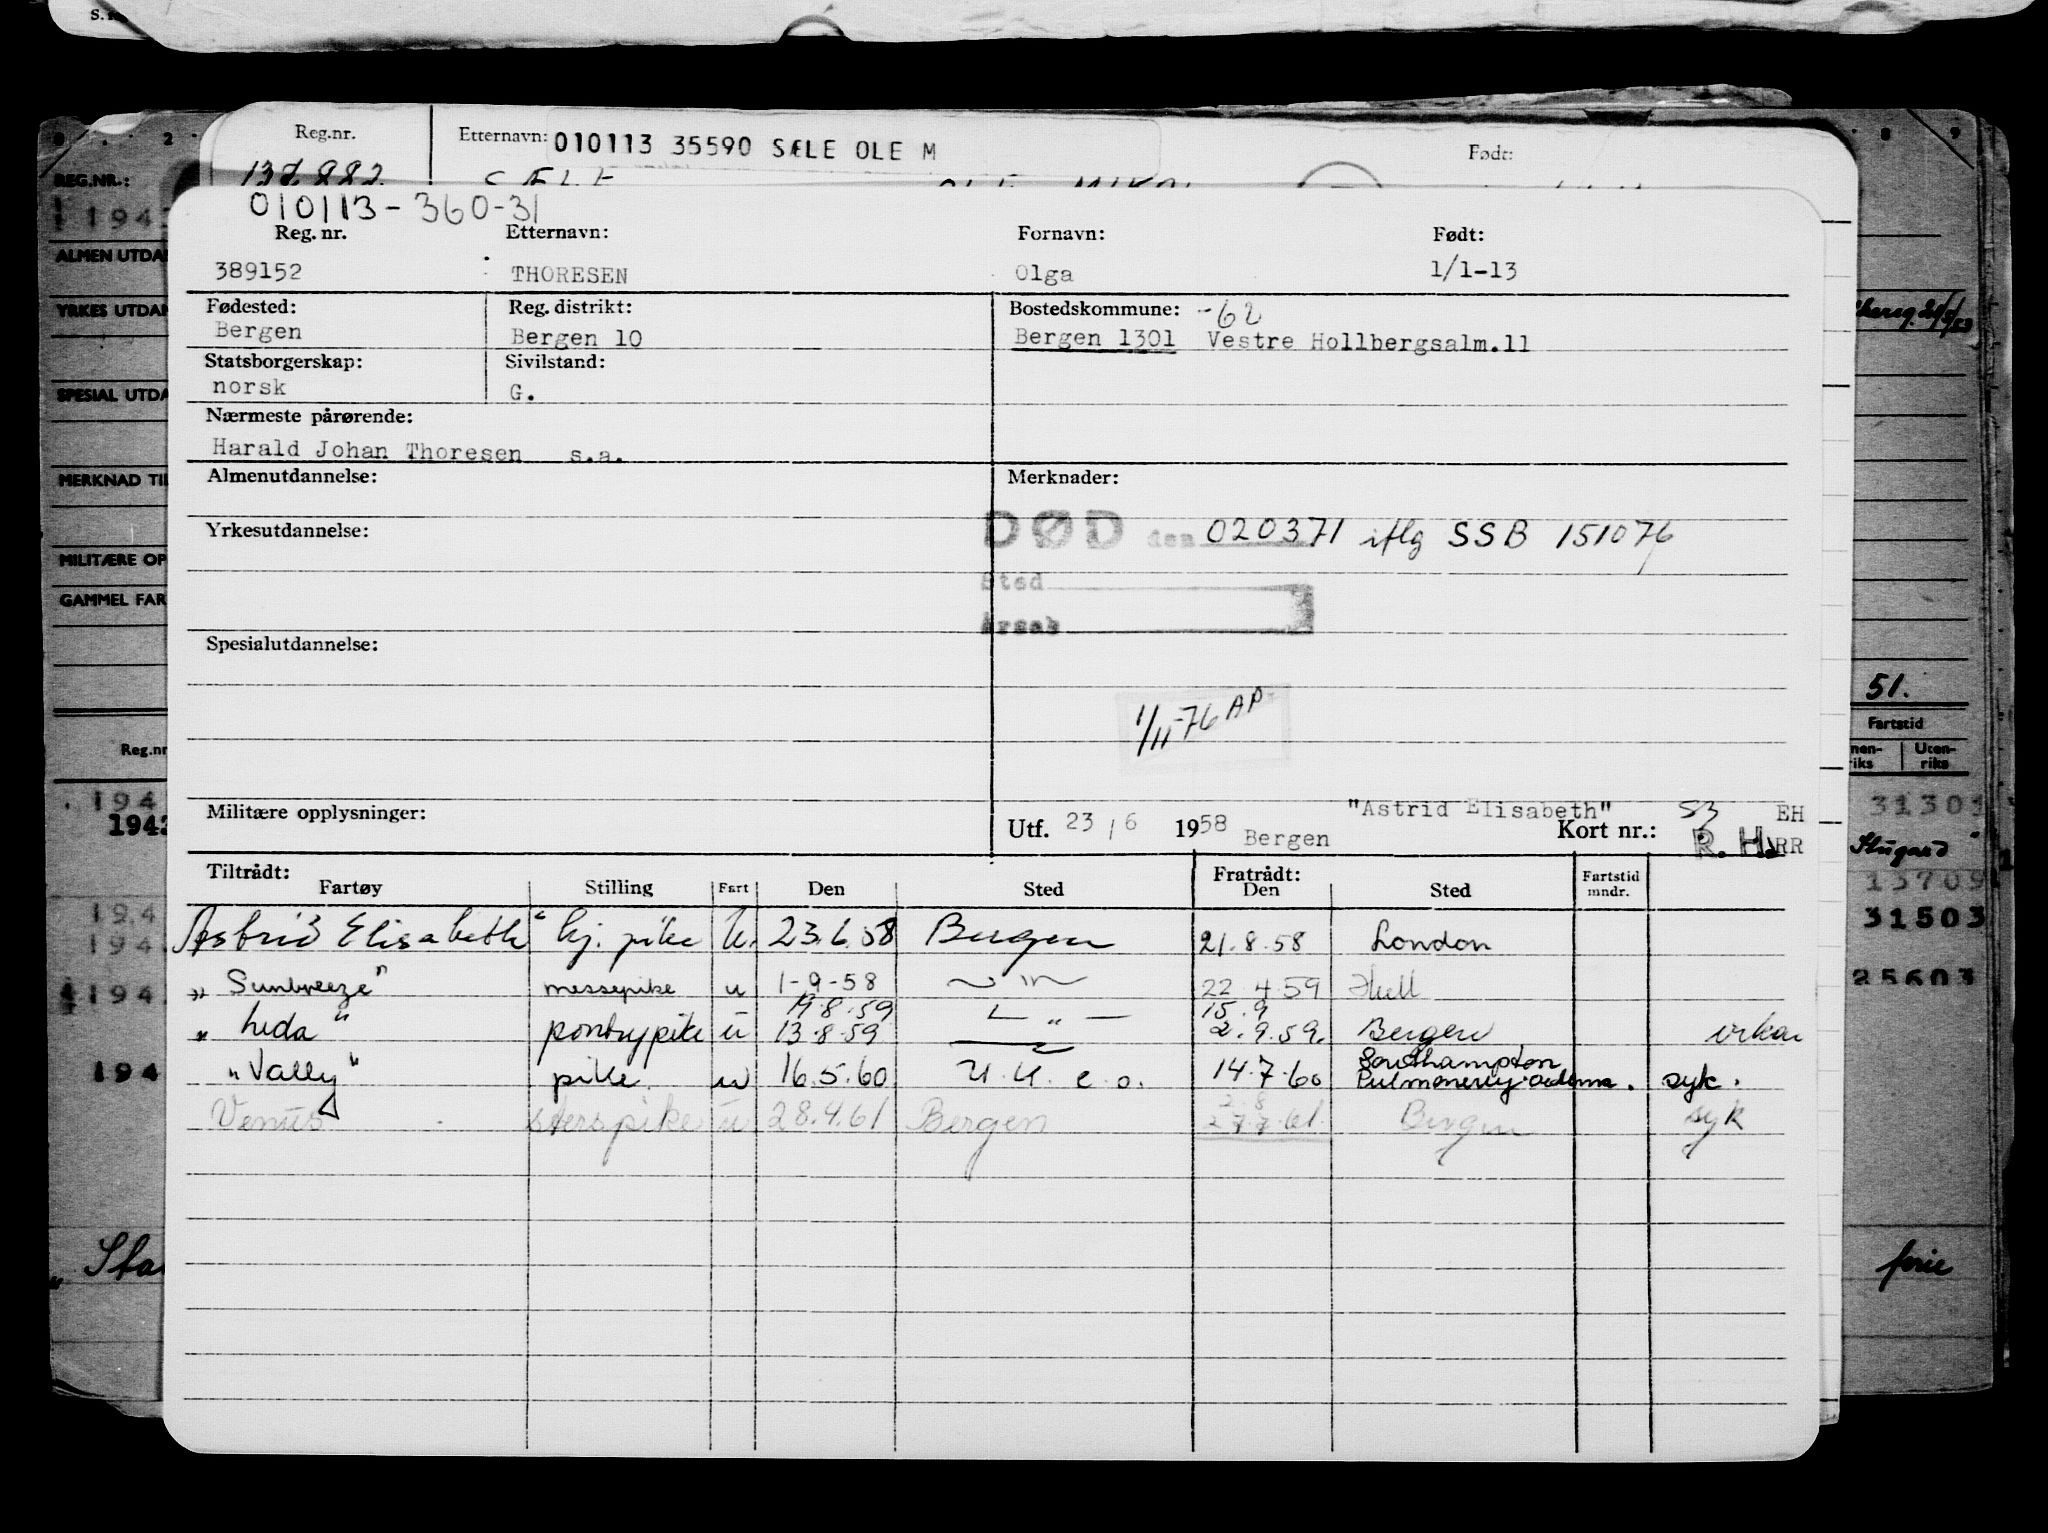 S.
Reg.nr. Etternavn: 010113 35590 SÆLE OLE M Født:
REG.NR.:
194
ALMEN UTDA
YRKES UTDAN
SPESIAL UTDA
MERKNAD TIL
MILITÆRE OP
GAMMEL FAR
010113-360-31
Reg. nr. Etternavn: Fornavn: Født:
389152 THORESEN Olga 1/1-13
Fødested: Reg. distrikt: Bostedskommune: -62
Bergen Bergen 10 Bergen 1301 Vestre Hollbergsalm.11
Statsborgerskap: Sivilstand:
norsk G.
Nærmeste pårørende:
Harald Johan Thoresen s.a.
Almenutdannelse: Merknader:
Yrkesutdannelse: DØD den 020371 iflg SSB 151076
Sted
Årsak
Spesialutdannelse:
1/11-76 AP
51.
Fartstid
Reg.nr
Uten-
riks
Militære opplysninger: Utf. 23/6 1958 Bergen "Astrid Elisabeth" Kort nr.: S3 EH
R. H. RR
Tiltrådt: Fratrådt:
Fartøy Stilling Fart Den Sted Den Sted Fartstid mndr.
Astrid Elisabeth" kj. pike u. 23.6.58 Bergen 21.8.58 London
"Sunbreeze" messepike u 1-9-58 —"— 22.4.59 Hull
19.8.59 15.9
"Leda" pantrypike u 13.8.59 —"— 2.9.59. Bergen vikar
"Vally" pike. u 16.5.60 U.K. e.o. 14.7.60 Southampton Pulmonery oedema. syk.
Venus u 28.4.61 Bergen 2.8 27.7.61. Bergen syk
194
1943
31301
15709
31503
25603
194
194
194
194
"Sta
ferie